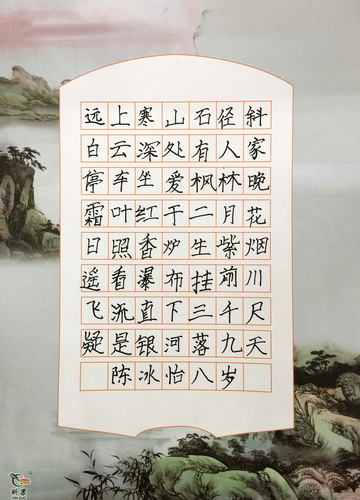 远上寒山石径斜
白云深处有人家
停车坐爱枫林晚
霜叶红于二月花
日照香炉生紫烟
遥看瀑布挂前川
飞流直下三千尺
疑是银河落九天
陈冰怡八岁